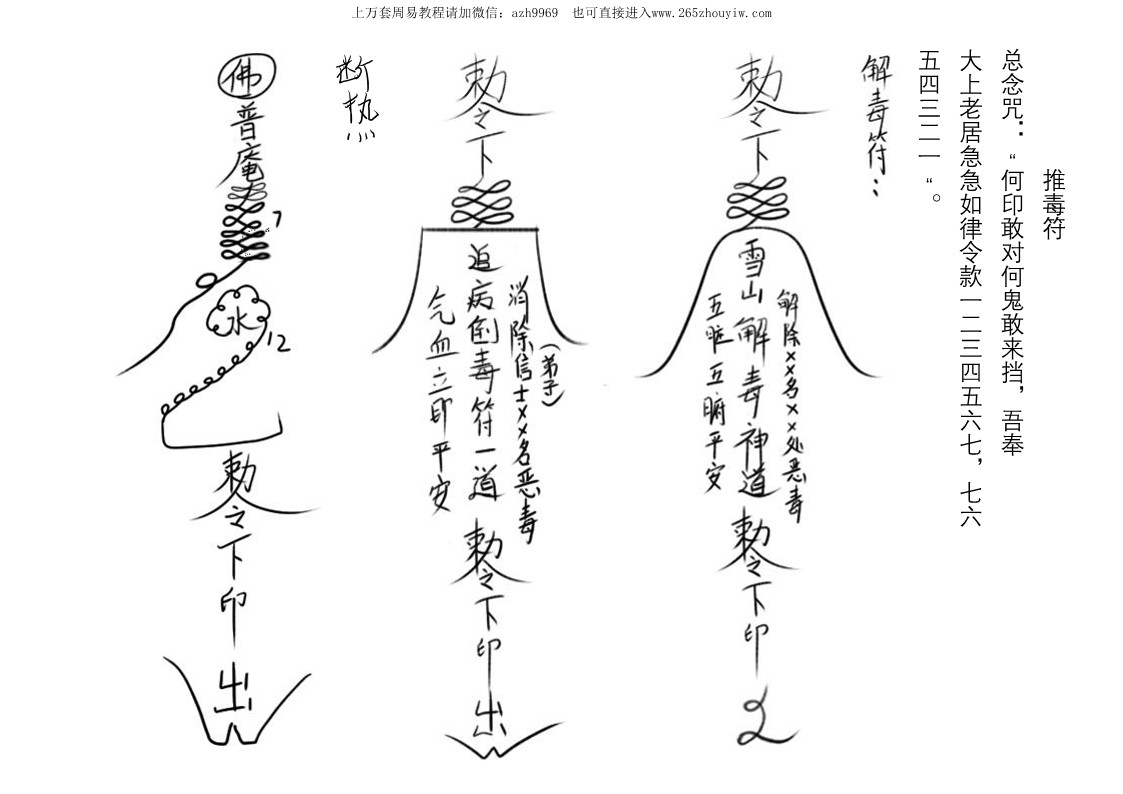 上万套周易教程请加微信：azh9969　也可直接进入www.265zhouyiw.com
推毒符
总念咒：“何印敢对何鬼敢来挡，吾奉
大上老居急急如律令款一二三四五六七，七六
五四三二一“。
解毒符：
敕令下
解除××名××处恶毒
雪山解毒神道
五脏五腑平安
敕令下印
敕令下
消除信士××名恶毒
（弟子）
追病倒毒符一道
气血立即平安
敕令下印出
断热
佛
普庵
7
水
12
敕令下印出